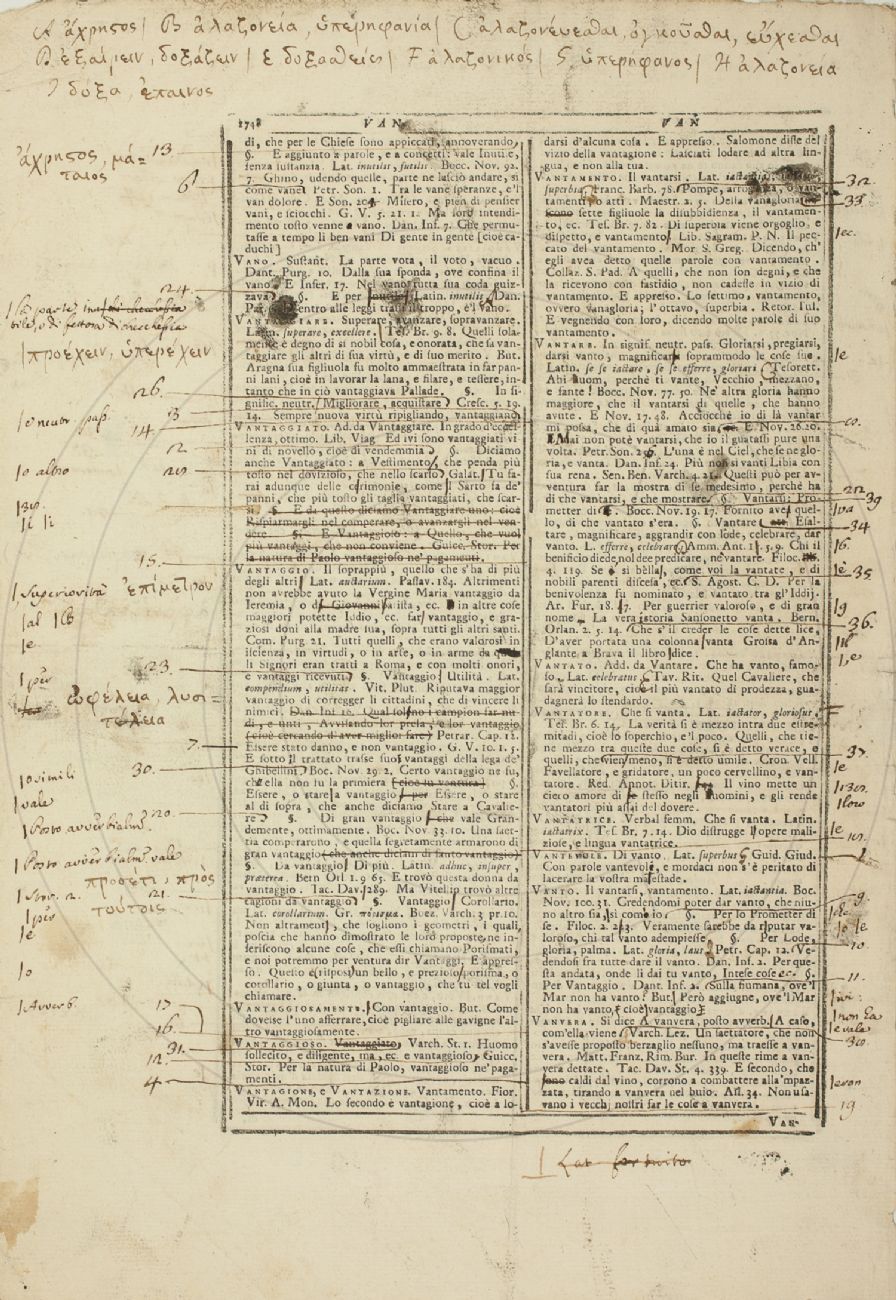 A ἄχρηςος | B ἀλαζονεία, ὑπερηφανία | C ἀλαζονέυεσθαι, ὀγκοῦσθαι, εὔχεσθαι
D ἐξαίρειν, δοξάζειν | E δοξασθείς | F ἀλαζονικός | G ὑπερήφανος | H ἀλαζονεια
I δόξα, ἔπαινος
1748 VAN VAN
ἄχρηςος, μά=
ταιος
13
6
24.
προέχειν, ὑπερέχειν
26.
13
14
2.
20
15.
ἐπίμετρον
23.
ὠφέλεια, λυσι=
τέλεια
7.
30.
20.
προσέτι, πρὸς
τούτοις
21.
17
16.
31.
12.
4
di, che per le Chiese sono appiccati, annoverando,
§. E aggiunto a parole, e a concetti: vale Inutile,
senza sustanzia. Lat. inutilis, futilis. Bocc. Nov. 92.
7. Ghino, udendo quelle, parte ne lasciò andare, sì
come vane. Petr. Son. 1. Tra le vane speranze, e'l
van dolore. E Son. 204. Misero, e pien di pensier
vani, e sciocchi. G. V. 5. 21. 1. Ma loro intendi-
mento tosto venne a vano. Dan. Inf. 7. Che permu-
tasse a tempo li ben vani Di gente in gente [cioè ca-
duchi]
VANO. Sustant. La parte vota, il voto, vacuo.
Dant. Purg. 10. Dalla sua sponda, ove confina il
vano. E Infer. 17. Nel vano tutta sua coda guiz-
zava §. E per Latin. inutilis, Dan.
Par. entro alle leggi trassi il troppo, e'l vano.
VANTAGGIARE. Superare, avanzare, sopravanzare.
Latin. superare, excellere. Tes. Br. 9. 8. Quelli sola-
mente è degno di sì nobil cosa, e onorata, che sa van-
taggiare gli altri di sua virtù, e di suo merito. But.
Aragna sua figliuola fu molto ammaestrata in far pan-
ni lani, cioè in lavorar la lana, e filare, e tessere, in-
tanto che in ciò vantaggiava Pallade. §. In si-
gnific. neutr. Migliorare, acquistare. Cresc. 5. 19.
14. Sempre nuova virtù ripigliando, vantaggiano.
VANTAGGIATO. Ad. da Vantaggiare. In grado d'eccel-
lenza, ottimo. Lib. Viag. Ed ivi sono vantaggiati vi-
ni di novello, cioè di vendemmia §. Diciamo
anche Vantaggiato: a Vestimento, che penda più
tosto nel dovizioso, che nello scarso. Galat. Tu sa-
rai adunque delle cerimonie, come il Sarto fa de'
panni, che più tosto gli taglia vantaggiati, che scar-
si. §. E da questo diciamo Vantaggiare uno: cioè
Risparmiargli nel comperare, o avanzargli nel ven-
dere. §. E Vantaggioso: a Quello, che vuol
più vantaggi, che non conviene. Guicc. Stor. Per
la natura di Paolo vantaggioso ne' pagamenti.
VANTAGGIO. Il soprappiù, quello che s'ha di più
degli altri. Lat. auctarium. Passav. 184. Altrimenti
non avrebbe avuto la Vergine Maria vantaggio da
Ieremia, o da Giovanni Batista, ec. in altre cose
maggiori potette Iddio, ec. far vantaggio, e gra-
ziosi doni alla madre sua, sopra tutti gli altri santi.
Com. Purg. 21. Tutti quelli, che erano valorosi in
iscienza, in virtudi, o in arse, o in arme da
li Signori eran tratti a Roma, e con molti onori,
e vantaggi ricevuti. §. Vantaggio. Utilità. Lat.
compendium, utilitas. Vit. Plut. Riputava maggior
vantaggio di corregger li cittadini, che di vincere i
nimici. Dan. Inf. 16. Qual sogliono i campion far nu-
di, e unti, Avvisando lor presa, e lor vantaggio
(cioè cercando d'aver miglior fare) Petrar. Cap. 12.
Essere stato danno, e non vantaggio. G. V. 10. 1. 5.
E sotto il trattato trasse suoi vantaggi della lega de'
Ghibellini. Boc. Nov. 29. 2. Certo vantaggio ne fu,
ch'ella non fu la primiera (cioè fu ventura) §.
Essere, o stare a vantaggio per Essere, o stare
al di sopra, che anche diciamo Stare a Cavalie-
re §. Di gran vantaggio che vale Gran-
demente, ottimamente. Boc. Nov. 33. 10. Una saet-
tia comperarono, e quella segretamente armarono di
gran vantaggio (che anche diciam di santo vantaggio)
§. Da vantaggio. Di più. Latin. adhuc, insuper,
praeterea. Bern Orl. 1. 9. 65. E trovò questa donna da
vantaggio. Tac. Dav. 289. Ma Vitellio trovò altre
cagioni da vantaggio. §. Vantaggio. Corollario.
Lat. corollarium. Gr. πόρισμα. Boez. Varch. 3 pr. 10.
Non altramenti, che sogliono i geometri, i quali,
poscia che hanno dimostrato le loro proposte, ne in-
feriscono alcune cose, che essi chiamano Porismati,
e noi potremmo per ventura dir Vantaggi. E appres-
so. Questo è risposi un bello, e prezioso porisma, o
corollario, o giunta, o vantaggio, che tu tel vogli
chiamare.
VANTAGGIOSAMENTE. Con vantaggio. But. Come
dovesse l'uno afferrare, cioè pigliare alle gavigne l'al-
tro vantaggiosamente.
VANTAGGIOSO. Vantaggiato, Varch. St. 1. Huomo
sollecito, e diligente, ma, ec. e vantaggioso. Guicc.
Stor. Per la natura di Paolo, vantaggioso ne' paga-
menti.
VANTAGIONE, e VANTAZIONE. Vantamento. Fior.
Vir. A. Mon. Lo secondo è vantagione, cioè a lo-
darsi d'alcuna cosa. E appresso. Salomone disse del
vizio della vantagione: Lasciati lodare ad altra lin-
gua, e non alla tua.
VANTAMENTO. Il vantarsi. Lat. iactantia,
superbia. Franc. Barb. 78. Pompe, arroganza, o van-
tamenti, o atti. Maestr. 2. 5. Della vanagloria na-
scono sette figliuole la disubbidienza, il vantamen-
to, ec. Tes. Br. 7. 82. Di superbia viene orgoglio, e
dispetto, e vantamento. Lib. Sagram. P. N. Il pec-
cato del vantamento. Mor. S. Greg. Dicendo, ch'
egli avea detto quelle parole con vantamento.
Collaz. S. Pad. A quelli, che non son degni, e che
la ricevono con fastidio, non cadesse in vizio di
vantamento. E appresso. Lo settimo, vantamento,
ovvero vanagloria; l'ottavo, superbia. Retor. Tul.
E vegnendo con loro, dicendo molte parole di suo
vantamento.
VANTARE. In signif. neutr. pass. Gloriarsi, pregiarsi,
darsi vanto, magnificare soprammodo le cose sue.
Latin. se se iactare, se se efferre, gloriari. Tesorett.
Abi huom, perchè ti vante, Vecchio, mezzano,
e fante! Bocc. Nov. 77. 50. Ne' altra gloria hanno
maggiore, che il vantarsi di quelle, che hanno
avute. E Nov. 17. 48. Acciocchè io di là vantar
mi possa, che di quà amato sia. E Nov. 26. 20.
Mai non potè vantarsi, che io il guatassi pure una
volta. Petr. Son. 226. L'una è nel Ciel, che se ne glo-
ria, e vanta. Dan. Inf. 24. Più non si vanti Libia con
sua rena. Sen. Ben. Varch. 4. 21. Questi può per av-
ventura far la mostra di se medesimo, perchè ha
di che vantarsi, e che mostrare. §. Vantarsi: Pro-
metter di se. Bocc. Nov. 19. 17. Fornito avea quel-
lo, di che vantato s'era. §. Vantare Esal-
tare, magnificare, aggrandir con lode, celebrare, dar
vanto. L. efferre, celebrare. Amm. Ant. 1. 5. 9. Chi il
benificio diede, nol dee predicare, nè vantare. Filoc.
4. 119. Se sì bella, come voi la vantate, e di
nobili parenti discesa, ec. S. Agost. C. D. Per la
benivolenza fu nominato, e vantato tra gl'Iddij.
Ar. Fur. 18. 7. Per guerrier valoroso, e di gran
nome. La vera istoria Sansonetto vanta. Bern.
Orlan. 2. 5. 14. Che s'il creder le cose dette lice,
D'aver portata una colonna vanta Grossa d'An-
glante a Brava il libro dice.
VANTATO. Add. da Vantare. Che ha vanto, famo-
so. Lat. celebratus. Tav. Rit. Quel Cavaliere, che
sarà vincitore, cioè il più vantato di prodezza, gua-
dagnerà lo stendardo.
VANTATORE. Che si vanta. Lat. iactator, gloriosus.
Tes. Br. 6. 14. La verità si è mezzo intra due estre-
mitadi, cioè lo soperchio, e'l poco. Quelli, che tie-
ne mezzo tra queste due cose, si è detto verace, e
quelli, che vien meno, si è detto umile. Cron. Vell.
Favellatore, e gridatore, un poco cervellino, e van-
tatore. Red. Annot. Ditir. Il vino mette un
cieco amore di se stesso negli huomini, e gli rende
vantatori più assai del dovere.
VANTATRICE. Verbal femm. Che si vanta. Latin.
iactatrix. Tes. Br. 7. 14. Dio distrugge l'opere mali-
ziose, e lingua vantatrice.
VANTEVOLE. Di vanto. Lat. superbus. Guid. Giud.
Con parole vantevoli, e mordaci non s'è peritato di
lacerare la vostra maestade.
VANTO. Il vantarsi, vantamento. Lat. iactantia. Boc.
Nov. 100. 31. Credendomi poter dar vanto, che niu-
no altro sia, sì come io. §. Per lo Prometter di
se. Filoc. 2. 213. Veramente sarebbe da riputar va-
loroso, chi tal vanto adempiesse. §. Per Lode,
gloria, palma. Lat. gloria, laus. Petr. Cap. 12. Ve-
dendosi fra tutte dare il vanto. Dan. Inf. 2. Per que-
sta andata, onde li dai tu vanto, Intese cose ec. §.
Per Vantaggio. Dant. Inf. 2. Sulla fiumana, ove'l
Mar non ha vanto. But. Però aggiugne, ove'l Mar
non ha vanto, cioè vantaggio.
VANVERA. Si dice A vanvera, posto avverb. A caso,
com'ella viene. Varch. Lez. Un saettatore, che non
s'avesse proposto berzaglio nessuno, ma traesse a van-
vera. Matt. Franz. Rim. Bur. In queste rime a van-
vera dettate. Tac. Dav. St. 4. 339. E secondo, che
sono caldi dal vino, corrono a combattere alla 'mpaz-
zata, tirando a vanvera nel buio. Asl. 34. Non usa-
vano i vecchi nostri far le cose a vanvera.
VAN-
32.
33.
ec.
39
34
35
36.
F
37.
9.
10.
11.
19
Lat. fortuito